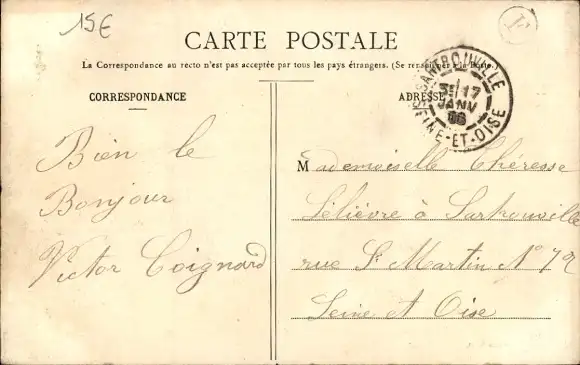 15€
CARTE POSTALE
La Correspondance au recto n'est pas acceptée par tous les pays étrangers. (Se renseigner à la Poste.)
CORRESPONDANCE
Bien le
Bonjour
Victor Coignard
ADRESSE
SARTROUVILLE
17
JANV
SEINE-ET-OISE
Mademoiselle Thérèsse
Lelièvre à Sartrouville
rue St Martin N° 72
Seine et Oise